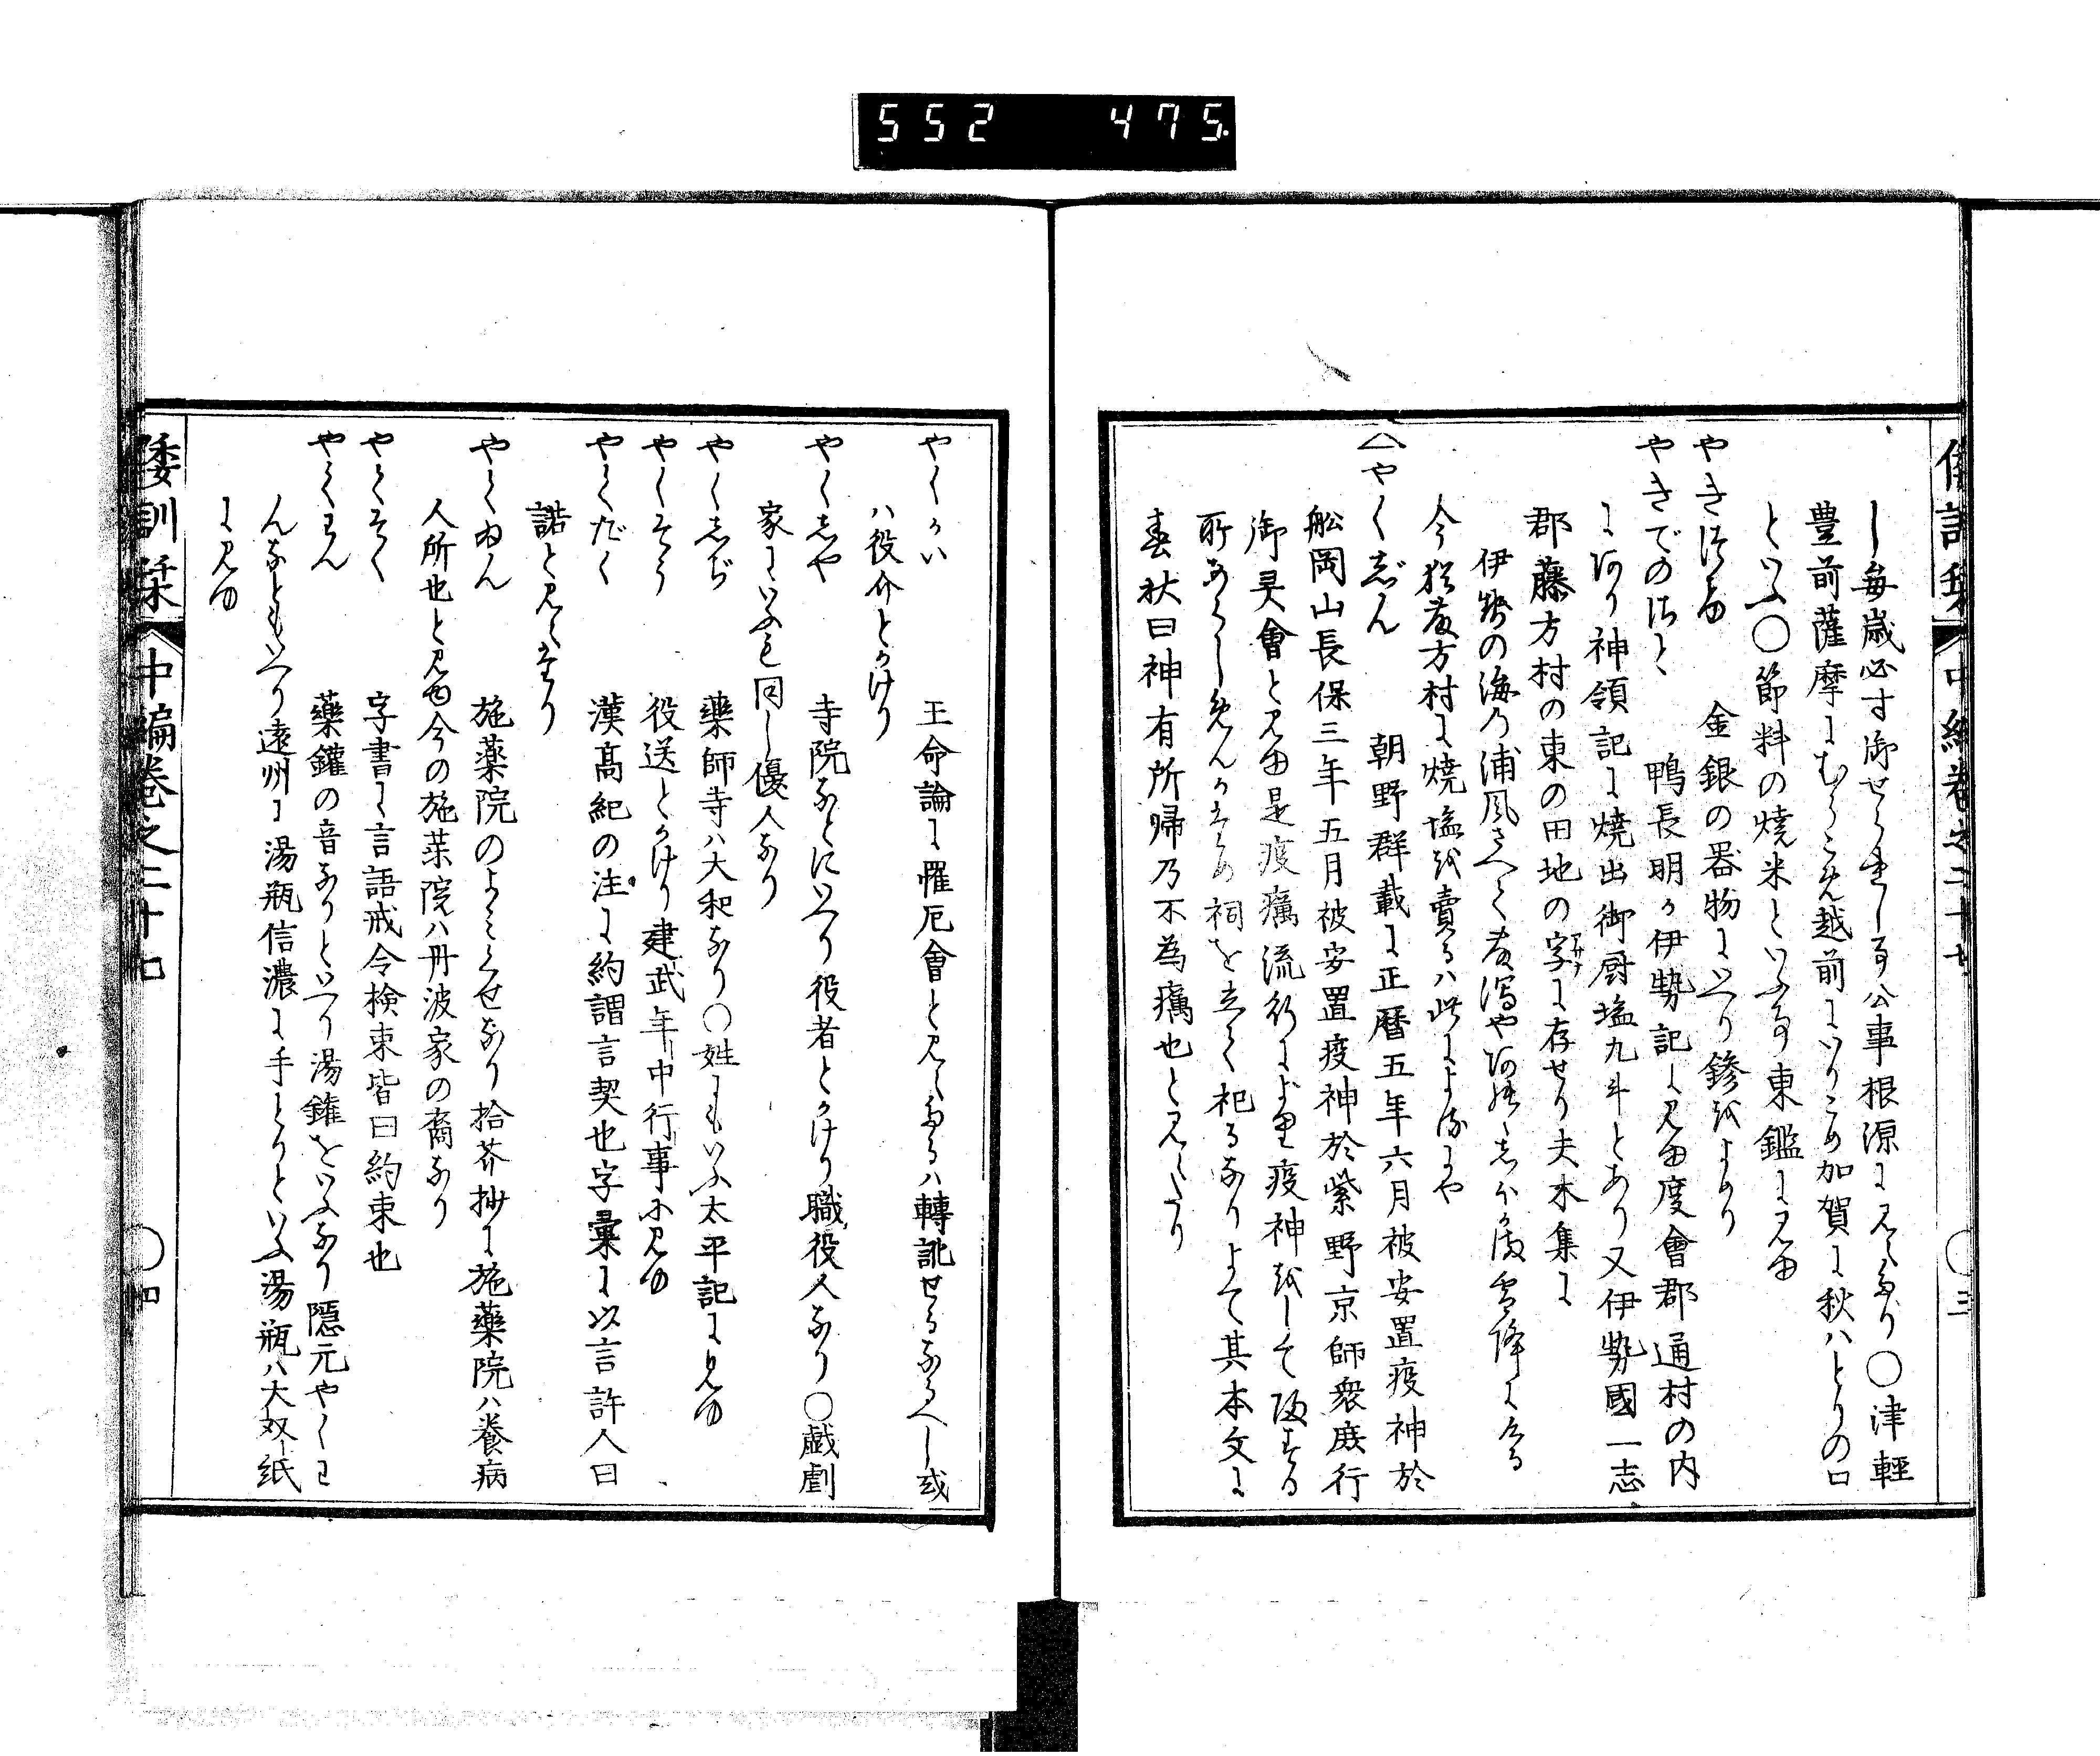 552 475
し毎歳必す御せられし事公事根源に見えたり〇津輕
豊前薩摩にむろこえ越前にいりこめ加賀に秋ハとりの口
といふ〇節料の焼米といふ事東鑑に見ゆ
やきつけ 金銀の器物にいへり鏒をよめり
やきでのさと 鴨長明か伊勢記に見ゆ度會郡通村の内
にあり神領記に焼出御厨塩九斗とあり又伊勢國一志
郡藤方村の東の田地の字に存せり夫木集に
伊勢の海乃浦風さえて
今猶藤方村に焼塩を賣るハ此によれるにや
へやくじん 朝野群載に正暦五年六月被安置疫神於
舩岡山長保三年五月被安置疫神於紫野京師衆庶行
御灵會と見ゆ是疫癘流行により疫神をして
祠を立て祀るなりよて其本文に
春秋曰神有所歸乃不為癘也と見えたり
倭訓栞 中編巻之二十七 〇三
やくかい 王命論に罹厄會と見えたるハ轉訛せるなるへし或
ハ役介とかけり
やくしや 寺院なとにいへり役者とかけり職役人なり〇戯劇
家にいふも同し優人なり
やくしぢ 藥師寺ハ大和なり〇姓にもいふ太平記に見ゆ
やくそう 役送とかけり建武年中行事に見ゆ
やくだく 漢髙紀の注に約謂言契也字彙に以言許人曰
諾と見えたり
やくゐん 施薬院のよみくせなり拾芥抄に施藥院ハ養病
人所也と見ゆ今の施薬院ハ丹波家の裔なり
やくそく 字書に言語戒令検束皆曰約束也
やくわん 藥鑵の音なりといへり湯鑵をいふなり隠元やくわ
んなともいへり遠州に湯瓶信濃に手とりといふ湯瓶ハ大双紙
に見ゆ
倭訓栞 中編巻之二十七 〇四